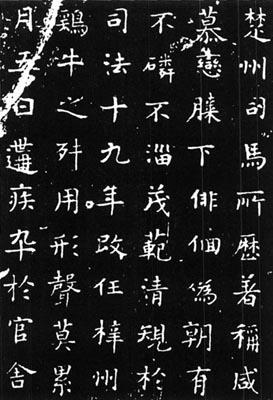 楚州司馬所歷著稱咸
慕戀膝下俳佪爲朝有
不磷不淄茂範清規於
司法十九年改任梓州
鷄牛之用形聲莫累
月五日遘疾卒於官舍